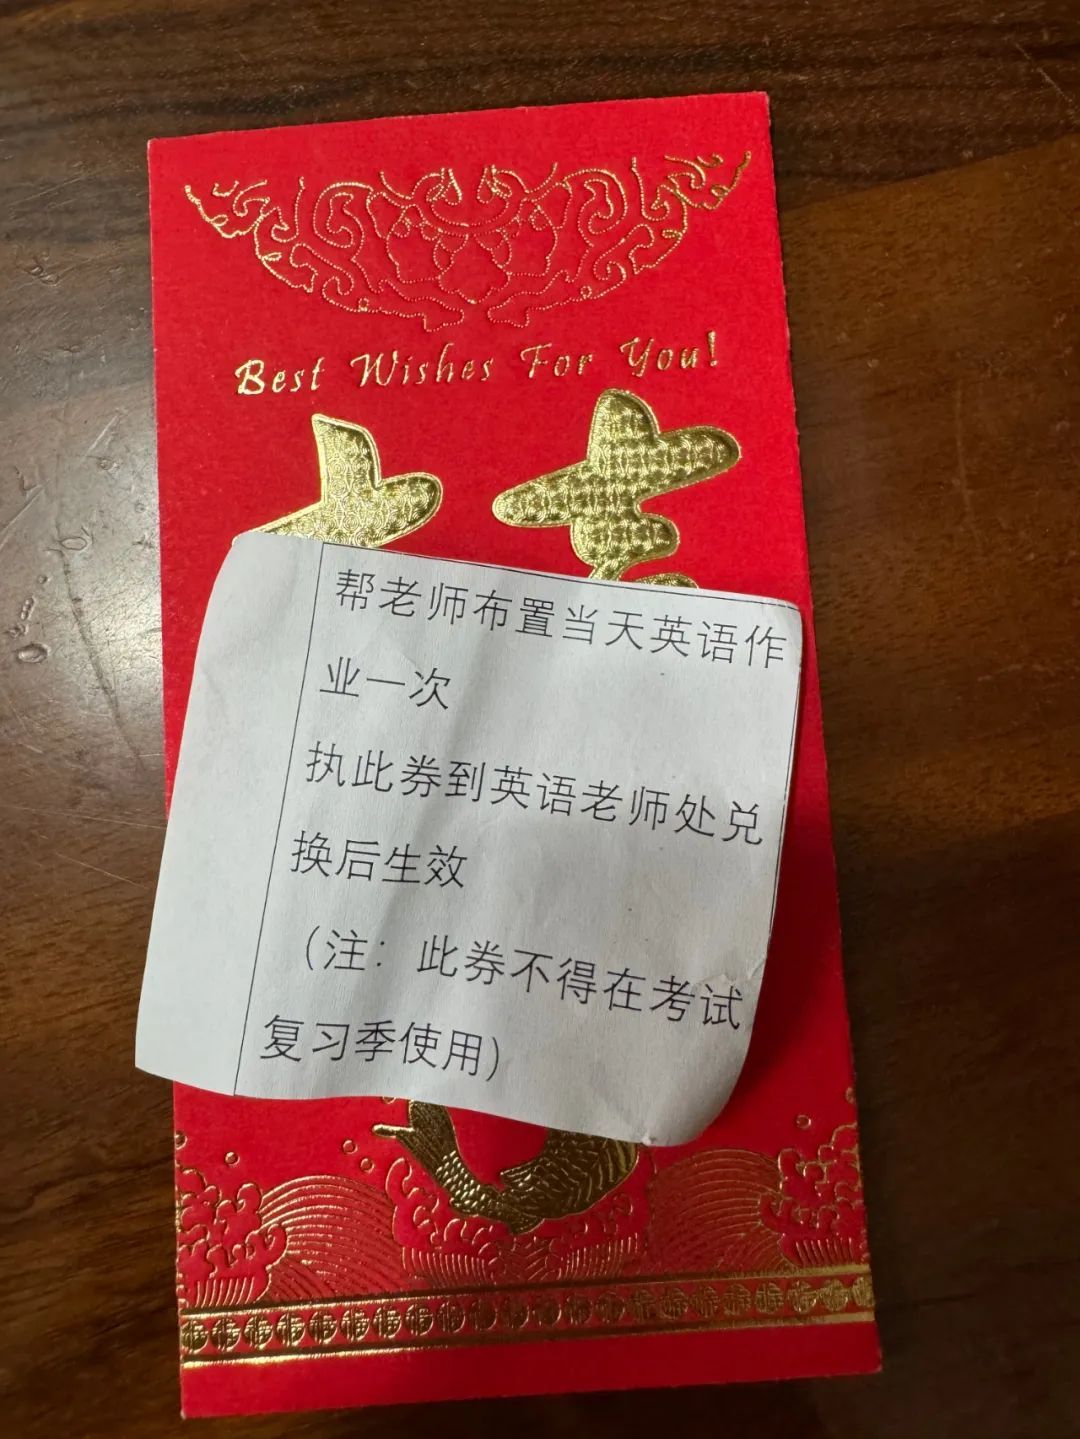 Best Wishes For You!
帮老师布置当天英语作
业一次
执此券到英语老师处兑
换后生效
（注：此券不得在考试
复习季使用）